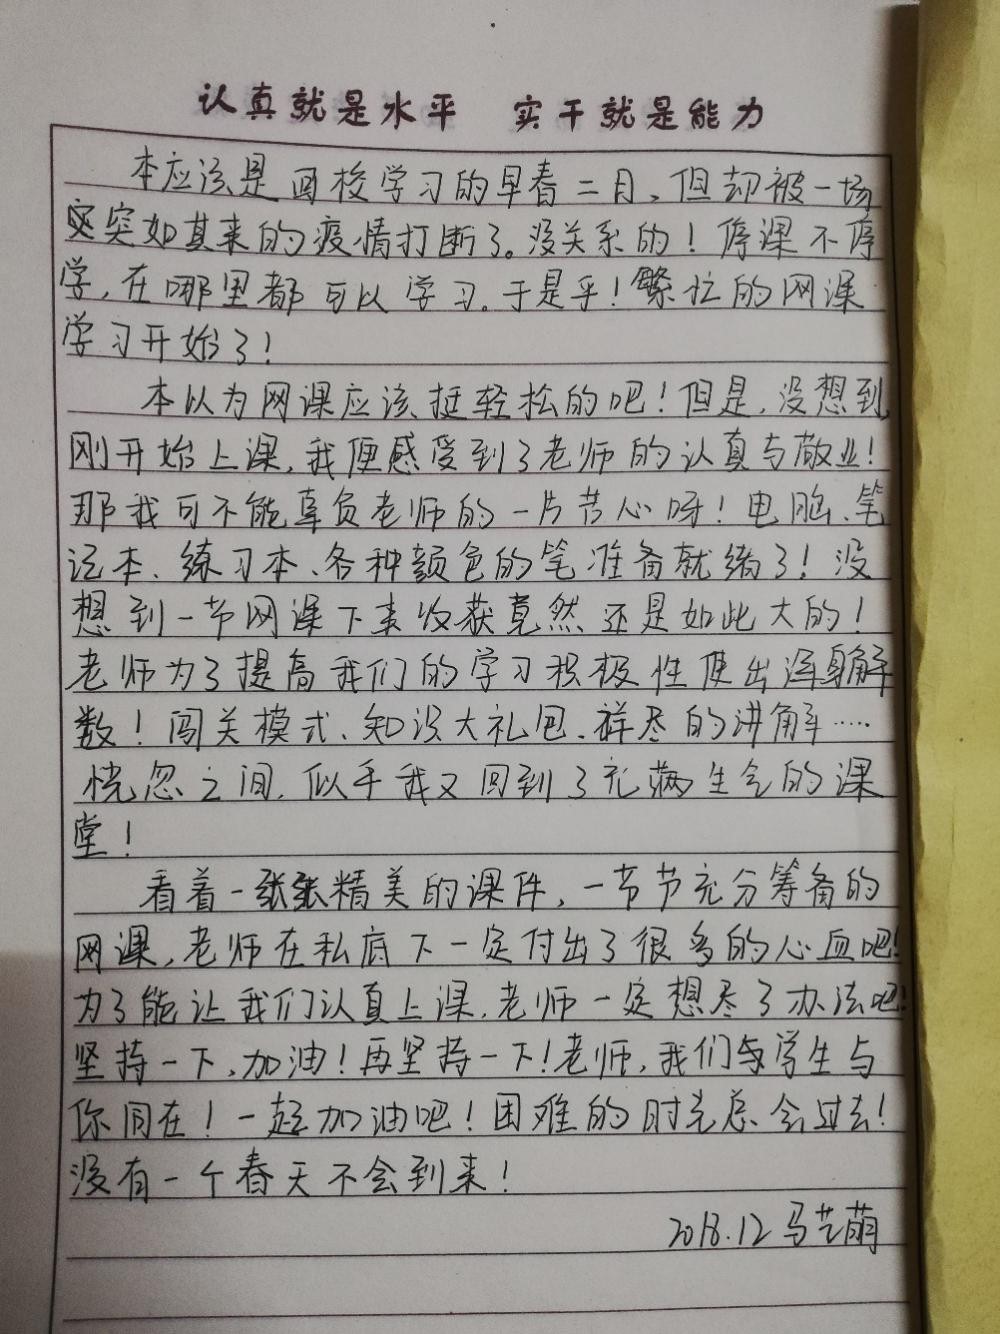 认真就是水平 实干就是能力
本应该是回校学习的早春二月，但却被一场
突如其来的疫情打断了。没关系的！停课不停
学，在哪里都可以学习。于是乎！繁忙的网课
学习开始了！
本以为网课应该挺轻松的吧！但是，没想到
刚开始上课，我便感受到了老师的认真与敬业！
那我可不能辜负老师的一片苦心呀！电脑、笔
记本、练习本、各种颜色的笔准备就绪了！没
想到一节网课下来收获竟然还是如此大的！
老师为了提高我们的学习积极性使出浑身解
数！闯关模式、知识大礼包、祥尽的讲解……
恍忽之间，似乎我又回到了充满生气的课
堂！
看着一张张精美的课件，一节节充分筹备的
网课，老师在私底下一定付出了很多的心血吧！
为了能让我们认真上课，老师一定想尽了办法吧！
坚持一下，加油！再坚持一下！老师，我们学生与
你同在！一起加油吧！困难的时光总会过去！
没有一个春天不会到来！
2018.12 马艺萌